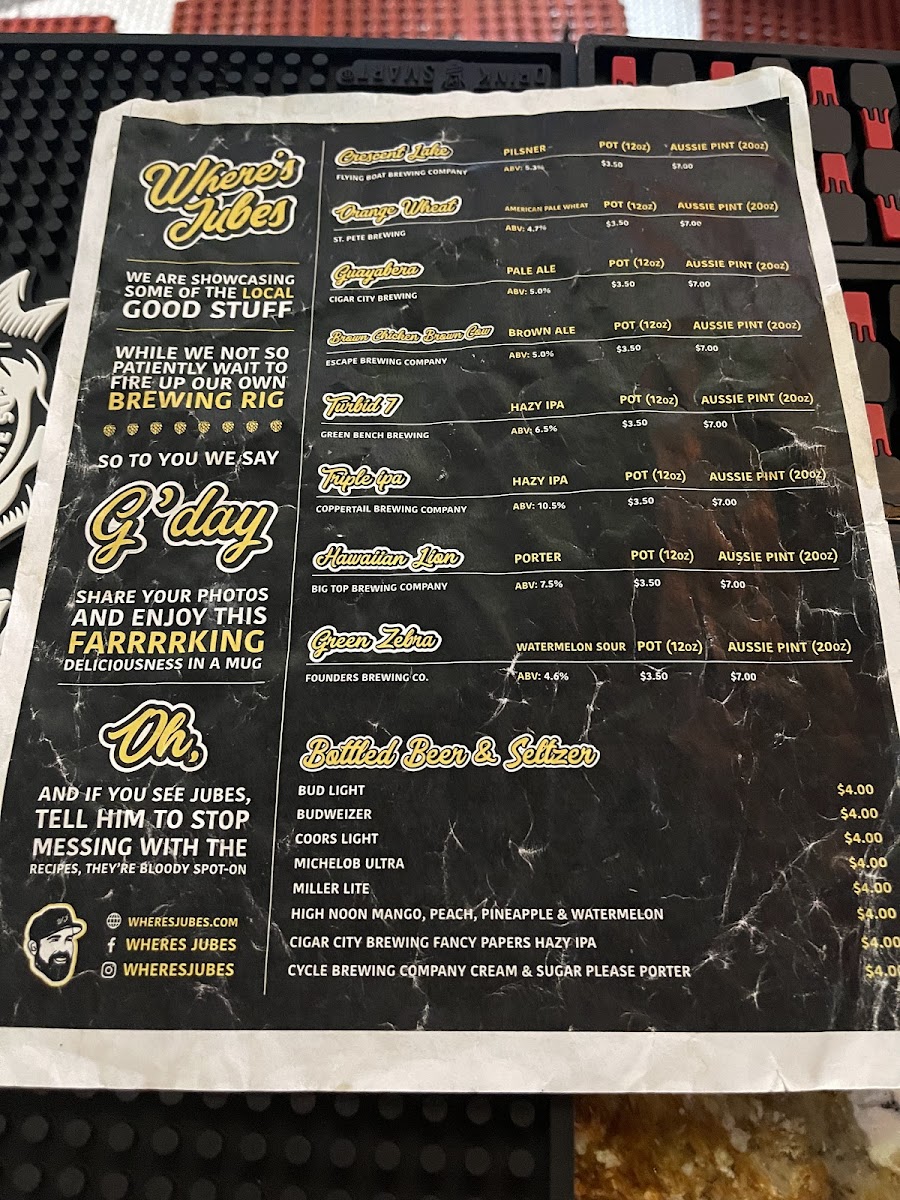 Where's
Jubes
WE ARE SHOWCASING
SOME OF THE LOCAL
GOOD STUFF
WHILE WE NOT SO
PATIENTLY WAIT TO
FIRE UP OUR OWN
BREWING RIG
SO TO YOU WE SAY
G'day
SHARE YOUR PHOTOS
AND ENJOY THIS
FARRRRKING
DELICIOUSNESS IN A MUG
Oh,
AND IF YOU SEE JUBES,
TELL HIM TO STOP
MESSING WITH THE
RECIPES, THEY'RE BLOODY SPOT-ON
WHERESJUBES.COM
WHERES JUBES
WHERESJUBES
Crescent Lake PILSNER POT (12oz) AUSSIE PINT (20oz)
FLYING BOAT BREWING COMPANY ABV: 5.3% $3.50 $7.00
Orange Wheat AMERICAN PALE WHEAT POT (12oz) AUSSIE PINT (20oz)
ST. PETE BREWING ABV: 4.7% $3.50 $7.00
Guayabera PALE ALE POT (12oz) AUSSIE PINT (20oz)
CIGAR CITY BREWING ABV: 5.0% $3.50 $7.00
Brown Chicken Brown Cow BROWN ALE POT (12oz) AUSSIE PINT (20oz)
ESCAPE BREWING COMPANY ABV: 5.0% $3.50 $7.00
Turbid 7 HAZY IPA POT (12oz) AUSSIE PINT (20oz)
GREEN BENCH BREWING ABV: 6.5% $3.50 $7.00
Triple ipa HAZY IPA POT (12oz) AUSSIE PINT (20oz)
COPPERTAIL BREWING COMPANY ABV: 10.5% $3.50 $7.00
Hawaiian Lion PORTER POT (12oz) AUSSIE PINT (20oz)
BIG TOP BREWING COMPANY ABV: 7.5% $3.50 $7.00
Green Zebra WATERMELON SOUR POT (12oz) AUSSIE PINT (20oz)
FOUNDERS BREWING CO. ABV: 4.6% $3.50 $7.00
Bottled Beer & Seltzer
BUD LIGHT $4.00
BUDWEIZER $4.00
COORS LIGHT $4.00
MICHELOB ULTRA $4.00
MILLER LITE $4.00
HIGH NOON MANGO, PEACH, PINEAPPLE & WATERMELON $4.00
CIGAR CITY BREWING FANCY PAPERS HAZY IPA $4.00
CYCLE BREWING COMPANY CREAM & SUGAR PLEASE PORTER $4.00